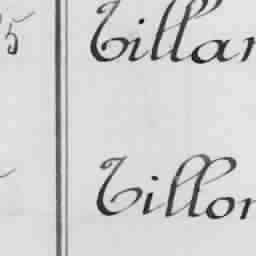 5 Tillar
Tillon